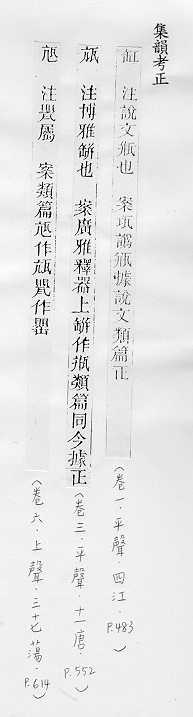 集韻考正
缸 注說文瓶也 案瓨譌瓶據說文類篇正(卷一．平聲．四江．P.483)
注博雅缾也 案廣雅釋器上缾作瓶類篇同今據正(卷三．平聲．十一唐．P.552)
注甖屬 案類篇 作 甖作罌(卷六．上聲．三十七蕩．P.614)